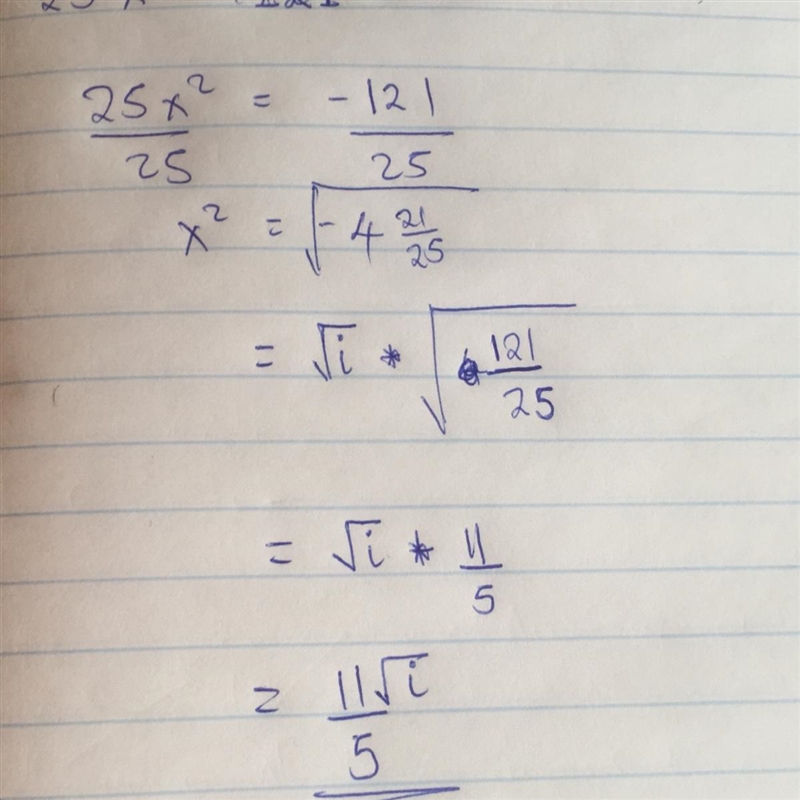 25x² = -121
25 25
x² = √-4 21/25
= √i * √121/25
= √i * 11/5
= 11√i
5